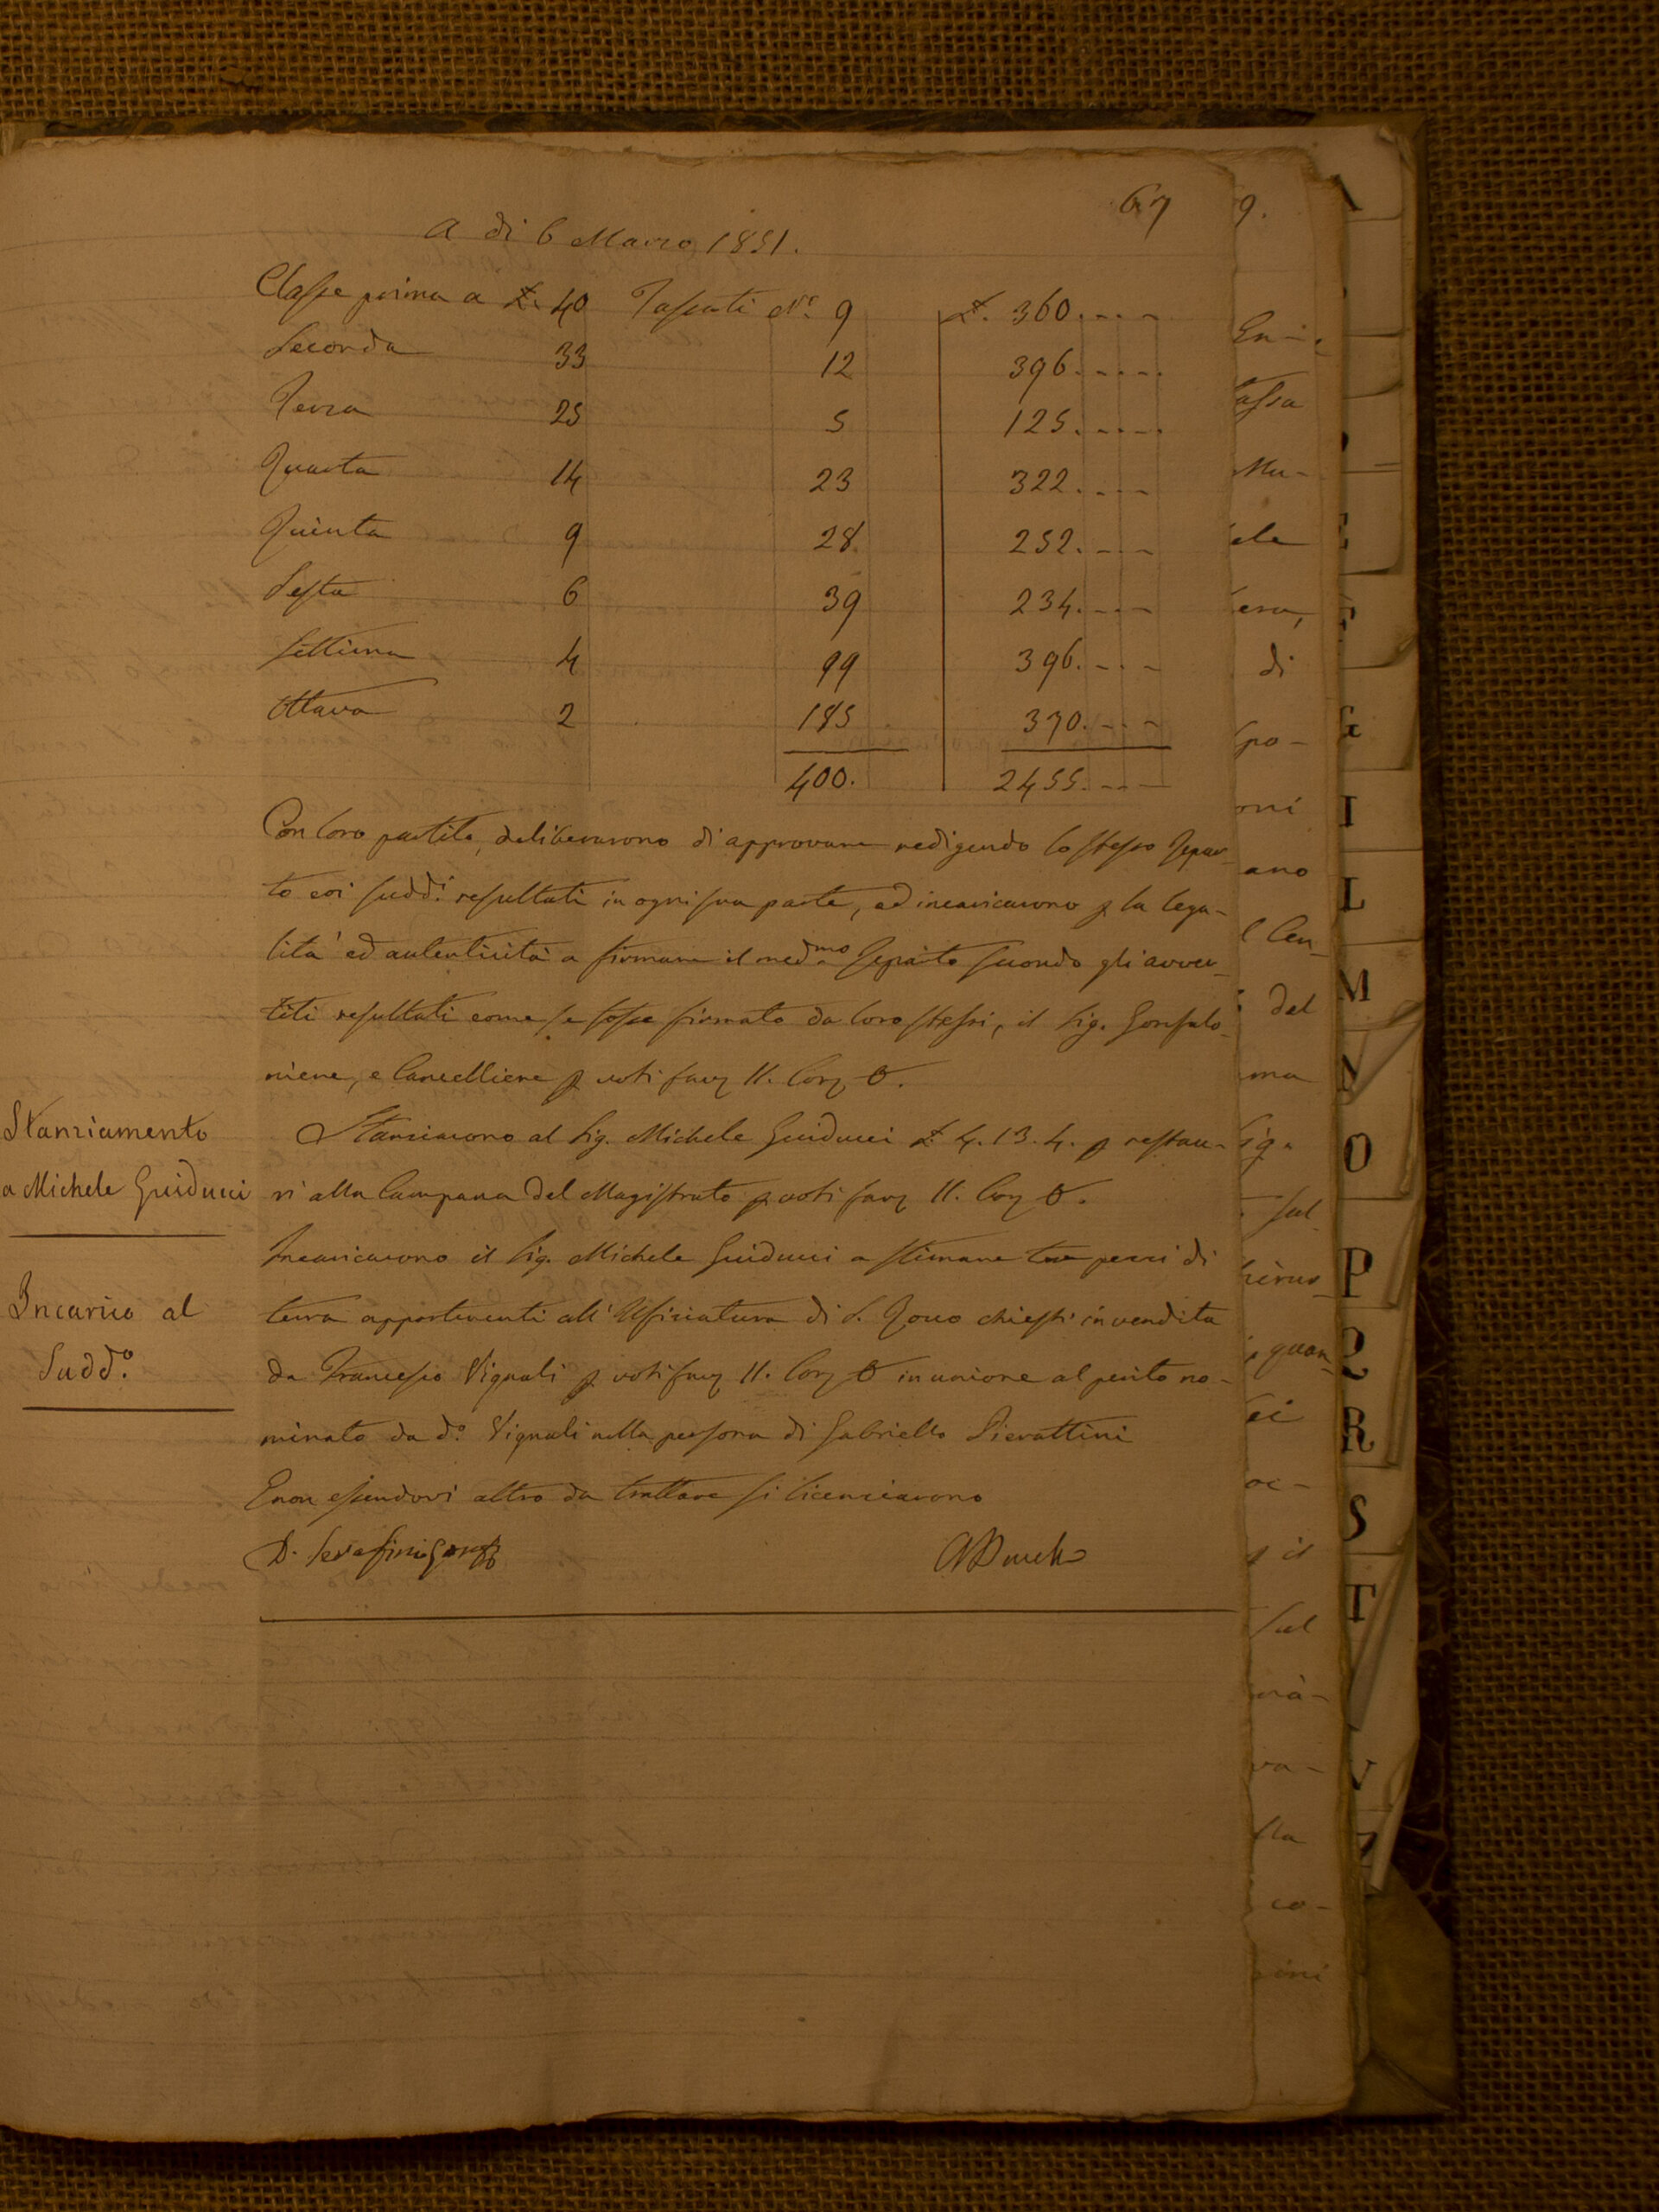 67
A di 6 Marzo 1851.
Classe prima a £. 40 Tassati N.° 9 £. 360.----
Seconda 33 12 396.----
Terza 25 5 125.----
Quarta 14 23 322.----
Quinta 9 28 252.----
Sesta 6 39 234.----
Settima 4 99 396.----
Ottava 2 185 370.----
400. 2455.----
Con loro partito, deliberarono di approvare redigendo lo stesso Repar-
to coi sudd.i resultati in ogni sua parte, ed incaricarono p la lega-
lità ed autenticità a firmare il med.mo Reparto secondo gli avver-
titi resultati come se fosse firmato da loro stessi, il Sig. Gonfalo-
niere, e Cancelliere p voti fav 11. Con 0.
Stanziamento
a Michele Guiducci
Stanziarono al Sig. Michele Guiducci £. 4. 13. 4. p restau-
ri alla Campana del Magistrato p voti fav 11. Con 0.
Incarico al
Sudd.°
Incaricarono il Sig. Michele Guiducci a stimare tre pezzi di
terra appartenenti all' Ufiziatura di S. Rocco chiesti in vendita
da Francesco Vignali p voti fav 11. Con 0 in unione al perito no-
minato da d.° Vignali nella persona di Gabriello Pierattini
E non essendovi altro da trattare si licenziarono
D. Serafini Gonf
9.
tassa
Mu-
di
del
Sig.
sul
quan-
il
sul
co-
E
F
G
I
L
M
N
O
P
Q
R
S
T
V
Z